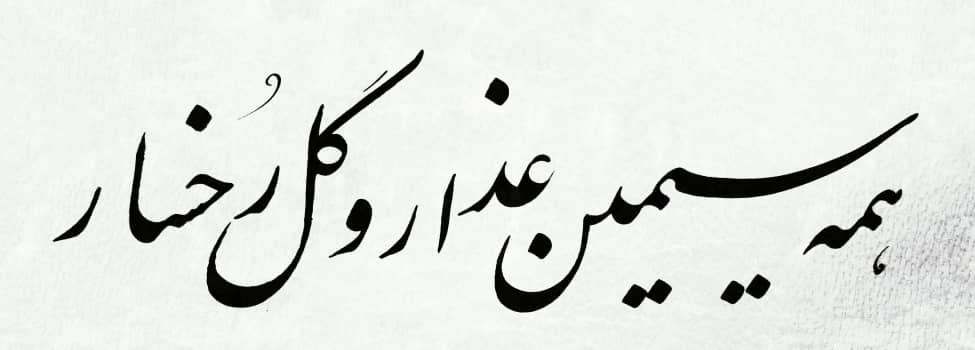 همه سیمین عذار و گل رُخسار